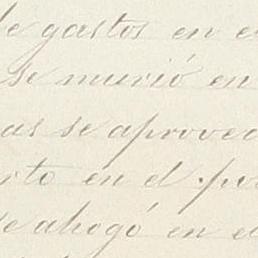 de gastos en e
se murió en
as se aprovec
rto en el po
se ahogó en e